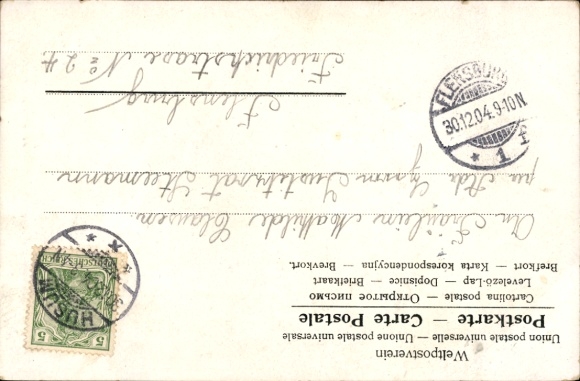 Weltpostverein
Union postale universelle — Unione postale universale
Postkarte — Carte Postale
Cartolina postale — Открытое письмо
Levelező-Lap — Dopisnice — Briefkaart
Brefkort — Karta korespondencyjna — Brevkort.
An Fräulein Mathilde Clausen
Adr. Herrn Justitzrat Steemann
Flensburg
Friedrichstrase No 24
HUSUM
5
FLENSBURG
30.12.04.9-10N.
* 1